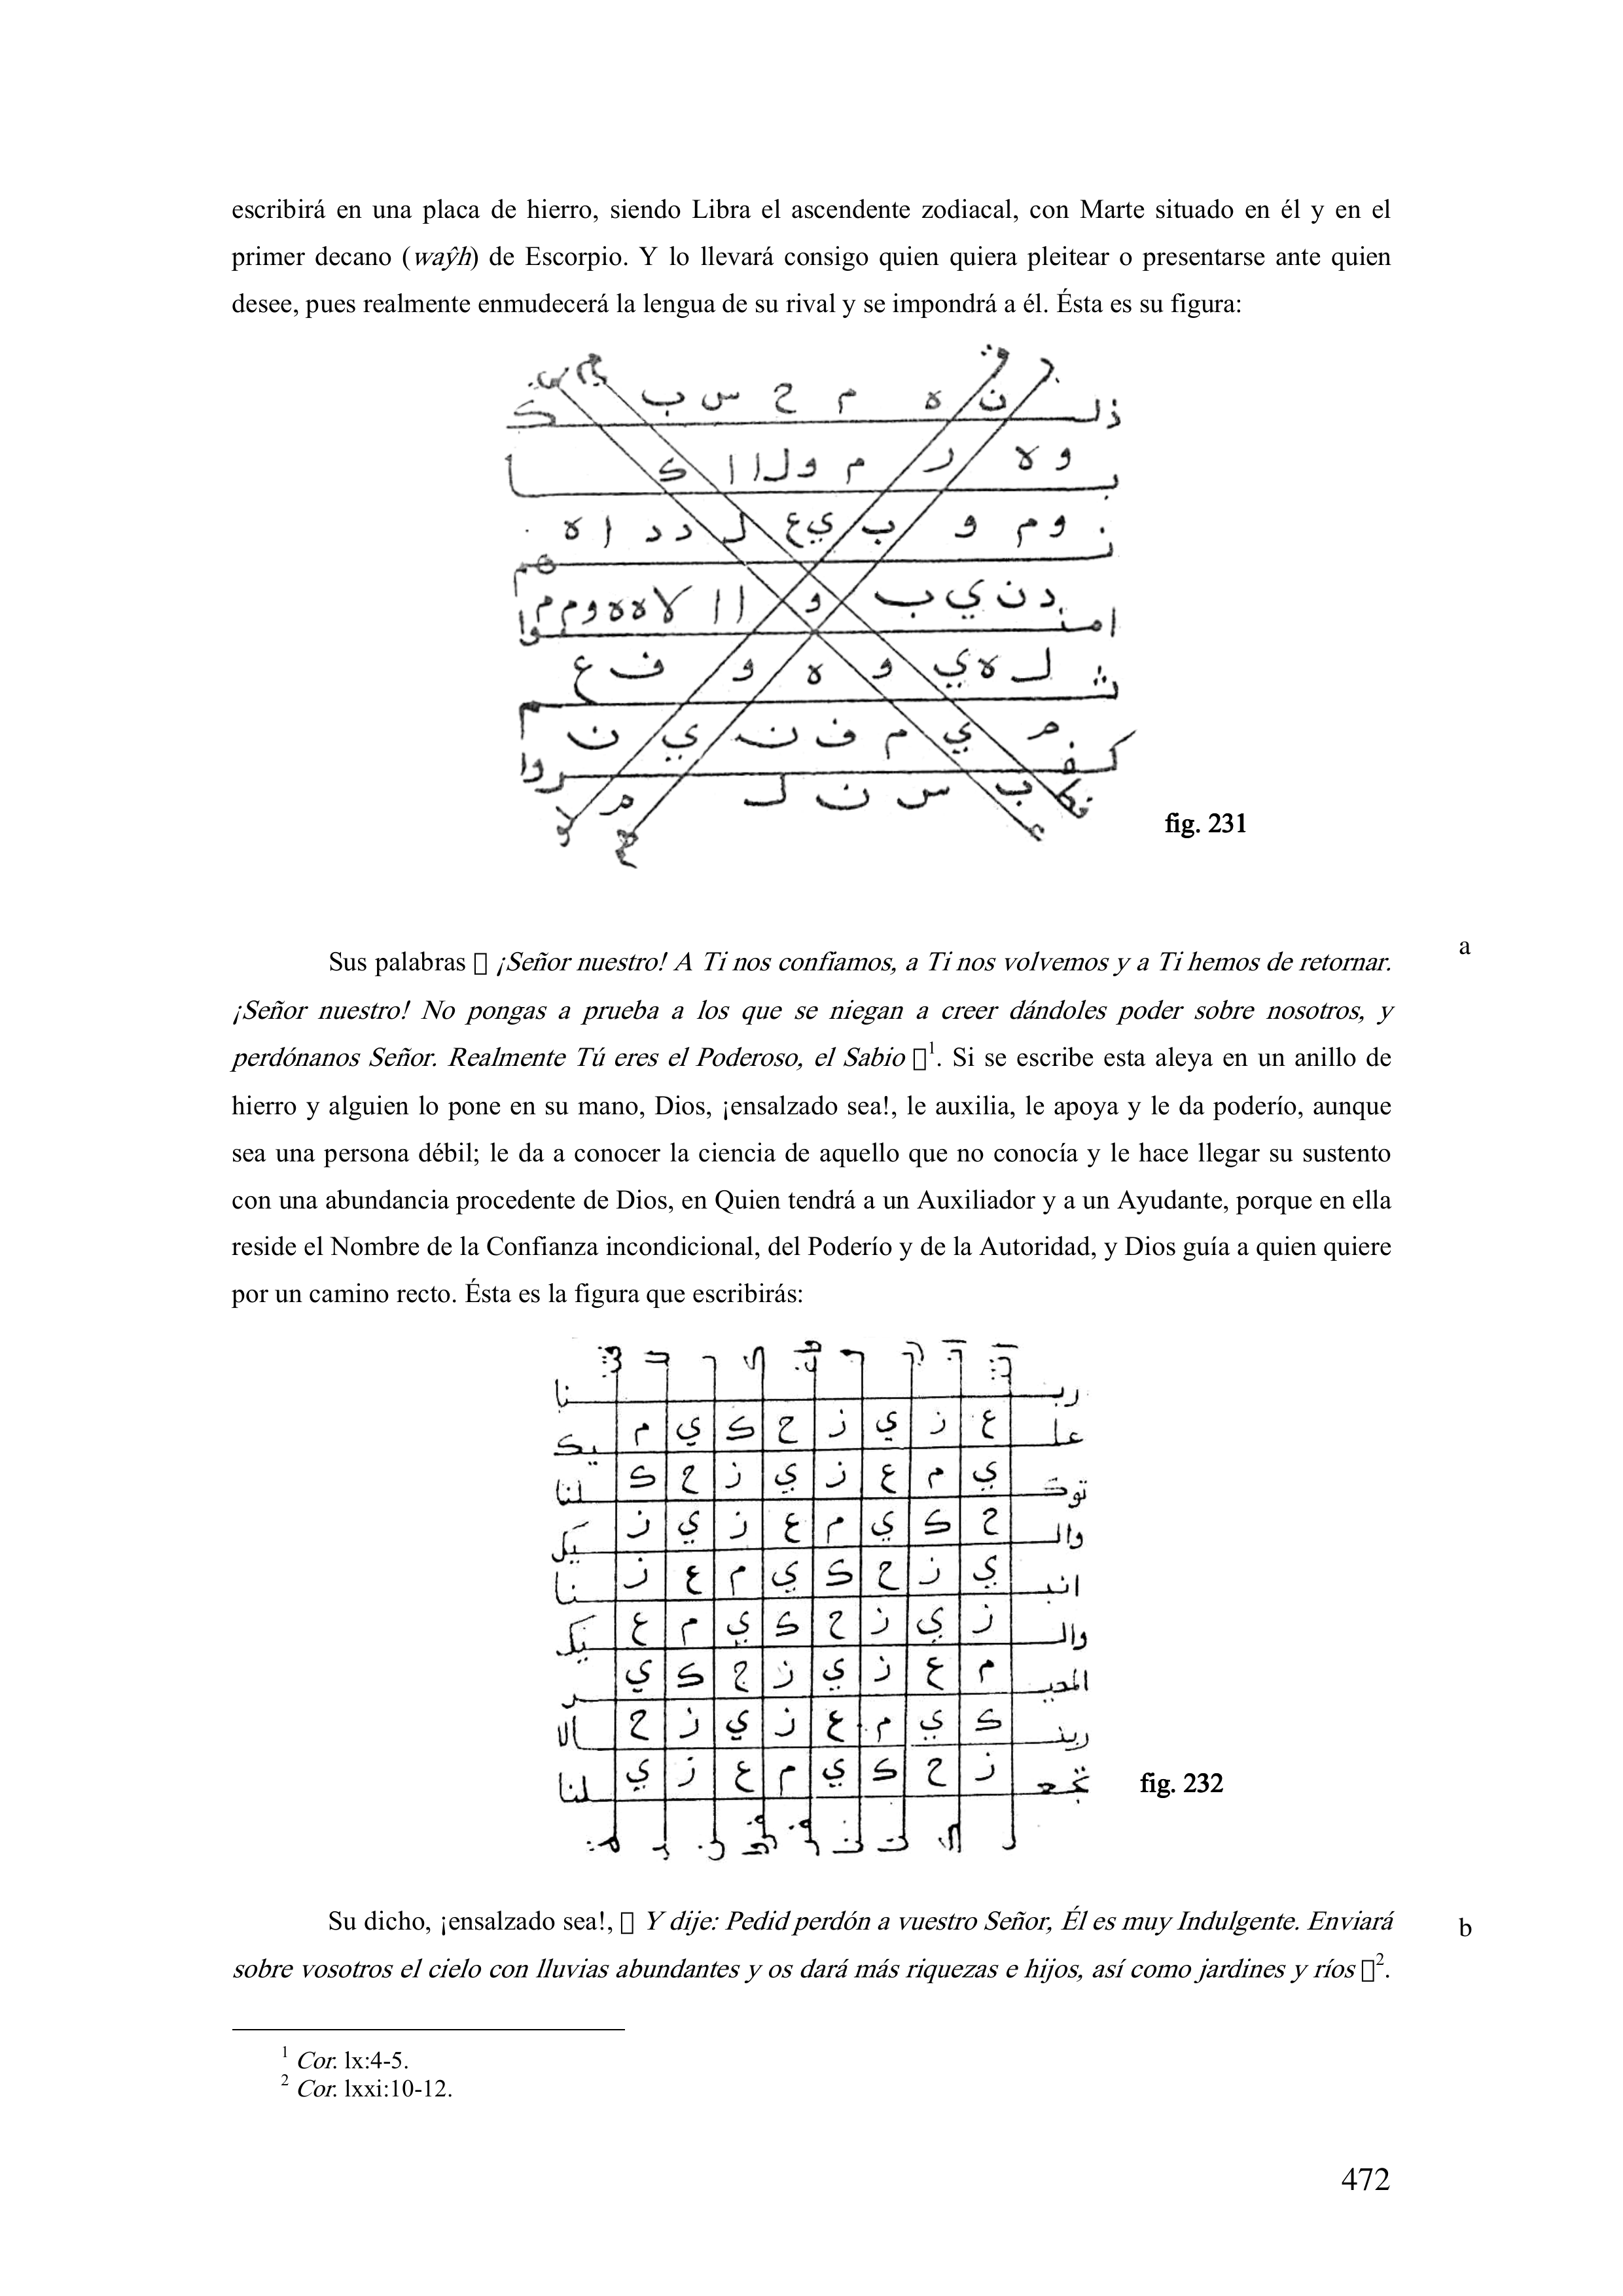 escribirá en una placa de hierro, siendo Libra el ascendente zodiacal, con Marte situado en él y en el
primer decano (waŷh) de Escorpio. Y lo llevará consigo quien quiera pleitear o presentarse ante quien
desee, pues realmente enmudecerá la lengua de su rival y se impondrá a él. Ésta es su figura:
ذلـ ن ه م ح س ب ك
بـ و ه ر م و ل ا ا ك ـا
و م و ب ي ع ل د د ا ه
هم
د ن ي ب و ا ا لا ه ه و م م
امنـ ـوا
ل ه ي و ه و ف ع
م ي م ف ن ي ن
كفـ ـروا
ب س ن ل م
fig. 231
Sus palabras ▯ ¡Señor nuestro! A Ti nos confiamos, a Ti nos volvemos y a Ti hemos de retornar. a
¡Señor nuestro! No pongas a prueba a los que se niegan a creer dándoles poder sobre nosotros, y
perdónanos Señor. Realmente Tú eres el Poderoso, el Sabio ▯1. Si se escribe esta aleya en un anillo de
hierro y alguien lo pone en su mano, Dios, ¡ensalzado sea!, le auxilia, le apoya y le da poderío, aunque
sea una persona débil; le da a conocer la ciencia de aquello que no conocía y le hace llegar su sustento
con una abundancia procedente de Dios, en Quien tendrá a un Auxiliador y a un Ayudante, porque en ella
reside el Nombre de la Confianza incondicional, del Poderío y de la Autoridad, y Dios guía a quien quiere
por un camino recto. Ésta es la figura que escribirás:
ربـ ـنا
علـ ع ز ي ز ح ك ي م ـيك
توكـ ي م ع ز ي ز ح ك ـلنا
والـ ح ك ي م ع ز ي ز ـيك
انبـ ي ز ح ك ي م ع ز ـنا
والـ ز ي ز ح ك ي م ع ـيك
المصيـ م ع ز ي ز ح ك ي ـر
ربنـ ك ي م ع ز ي ز ح ـالا
تجعـ ز ح ك ي م ع ز ي ـلنا
fig. 232
Su dicho, ¡ensalzado sea!, ▯ Y dije: Pedid perdón a vuestro Señor, Él es muy Indulgente. Enviará b
sobre vosotros el cielo con lluvias abundantes y os dará más riquezas e hijos, así como jardines y ríos ▯2.
1 Cor. lx:4-5.
2 Cor. lxxi:10-12.
472